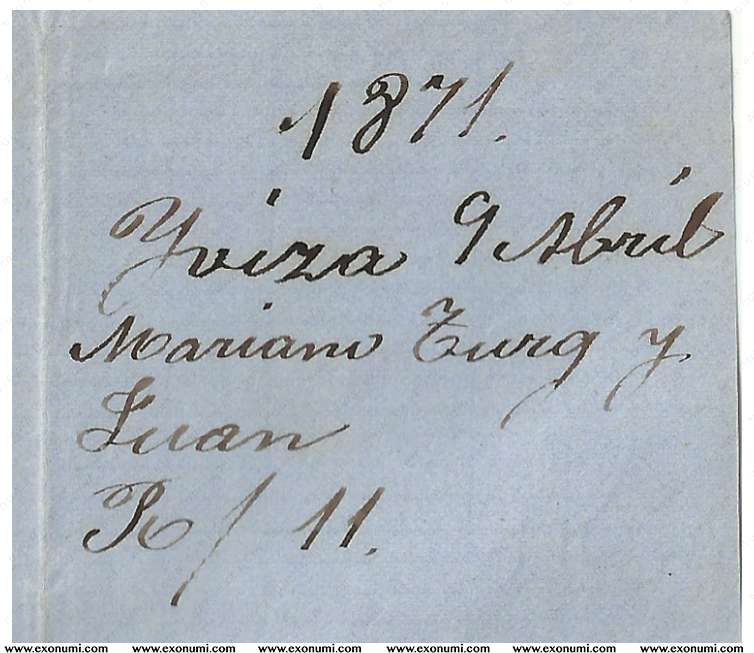 1871.
Yviza 9 Abril
Mariano Turg y
Juan
R/ 11.
www.exonumi.com www.exonumi.com www.exonumi.com www.exonumi.com www.exonumi.com